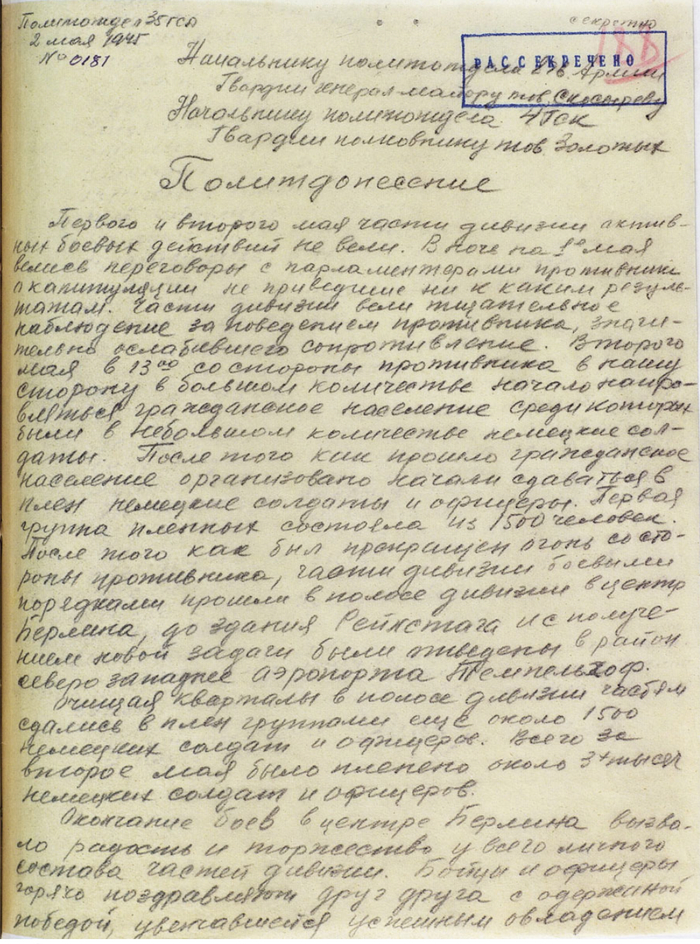 Политотдел 35 ГСД
секретно
2 мая 1945
188
№ 0181
РАССЕКРЕЧЕНО
Начальнику политотдела 8 гв. Армии
Гвардии генерал майору тов. Скосыреву
Начальнику политотдела 4 ГСК
Гвардии полковнику тов Золотых
Политдонесение
Первого и второго мая части дивизии актив-
ных боевых действий не вели. В ночь на 1ое мая
велись переговоры с парламентерами противника
о капитуляции не приведшие ни к каким резуль-
татам. Части дивизии вели тщательное
наблюдение за поведением противника, значи-
тельно ослабившего сопротивление. Второго
мая в 13 00 со стороны противника в нашу
сторону в большом количестве начало напра-
вляться гражданское население среди которых
были в небольшом количестве немецкие сол-
даты. После того как прошло гражданское
население организовано начали сдаваться в
плен немецкие солдаты и офицеры. Первая
группа пленных состояла из 1500 человек.
После того как был прекращен огонь со сто-
роны противника, части дивизии боевыми
порядками прошли в полосе дивизии в центр
Берлина, до здания Рейхстага и с получе-
нием новой задачи были отведены в район
северо западнее аэропорта Темпельхоф.
Очищая кварталы в полосе дивизии частям
сдались в плен группами еще около 1500
немецких солдат и офицеров. Всего за
второе мая было пленено около 3х тысяч
немецких солдат и офицеров.
Окончание боев в центре Берлина вызва-
ло радость и торжество у всего личного
состава частей дивизии. Бойцы и офицеры
горячо поздравляют друг друга с одержаной
победой, увенчавшейся успешным овладением